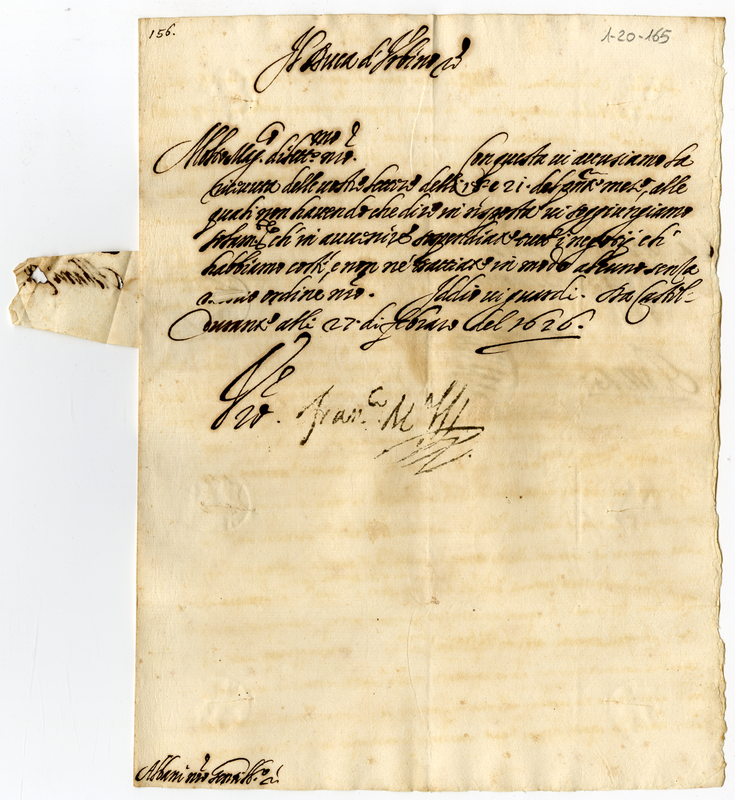 156.
1-20-165
Il Duca di Urbino
Molto Mag.co dilett.mo n.ro
Con questa vi accusiamo la
ricevuta delle vostre lettere delli 18 e 21. del p.nte mese, alle
quali non havendo che dire in risposta vi soggiungiamo
solam.te ch' in avvenire negotij ch'
habbiamo costì, e non ne trattiate in modo alcuno senza
ordine n.ro. Iddio vi guardi. Da Castel-
durante alli 27 di febraro del 1626.
Fran.co M
Albani n.ro